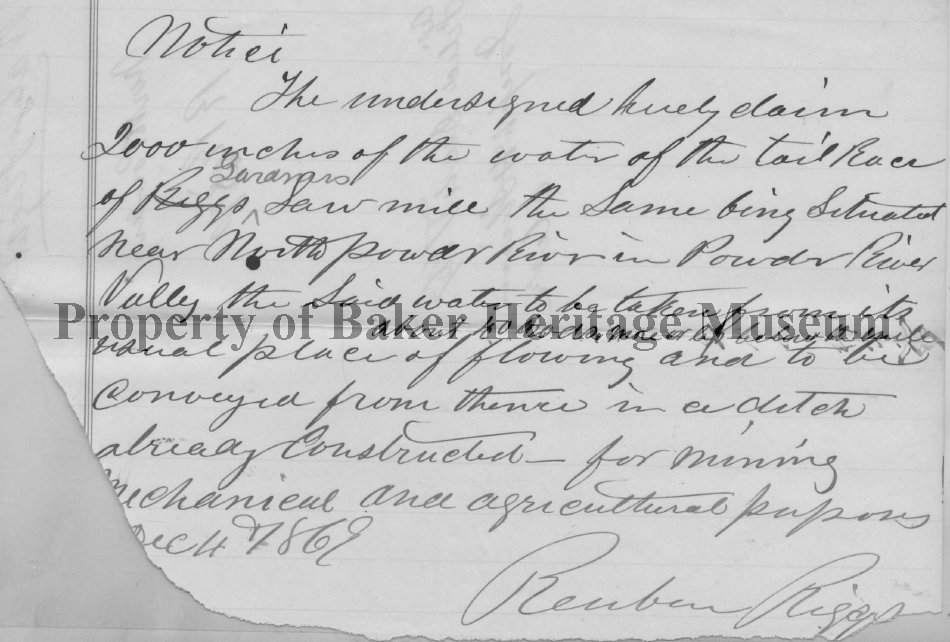 Notice
The undersigned hereby claim
2000 inches of the water of the tail Race
Gardners
of Riggs Saw mill the Same being Situated
near North powdr River in Powdr River
Vally the Said water to be taken from its
Property of Baker Heritage Museum
about below the mill
usual place of flowing and to be
conveyed from thence in a ditch
already Constructed — for mining
Mechanical and agricultural purposes
Dec 4th 1869
Reuben Riggs